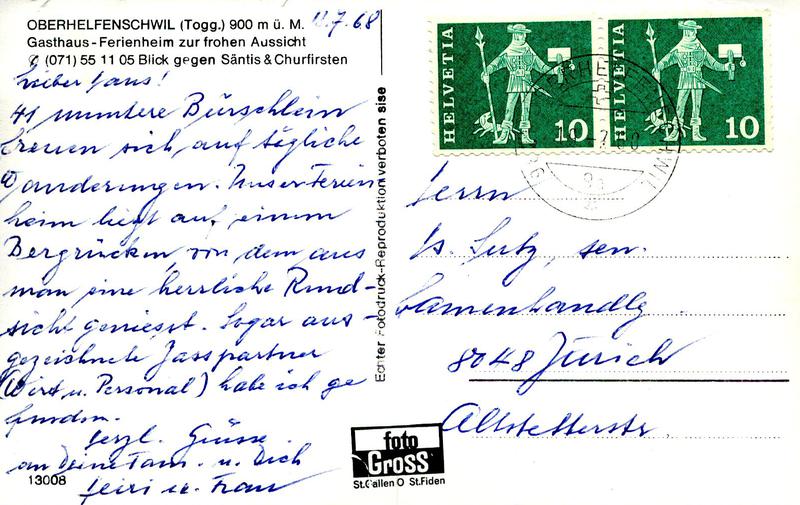 OBERHELFENSCHWIL (Togg.) 900 m ü. M. 11.7.68
Gasthaus - Ferienheim zur frohen Aussicht
✆ (071) 55 11 05 Blick gegen Säntis & Churfirsten
Lieber Hans!
41 muntere Bürschlein
freuen sich, auf tägliche
Wanderungen. Unser Ferien
heim liegt auf einem
Bergrücken, von dem aus
man eine herrliche Rund-
sicht geniesst. Sogar aus-
gezeichnete Jasspartner
(Wirt u. Personal) habe ich ge
funden.
Herzl. Grüsse
an Deine Fam. u. Dich
Heiri u. Frau
13008
Echter Fotodruck-Reproduktion verboten sise
foto
Gross
St. Gallen O St. Fiden
HELVETIA 10
HELVETIA 10
Herrn
Hs. Lutz, sen.
Samenhandlg.
8048 Zürich
Altstetterstr.